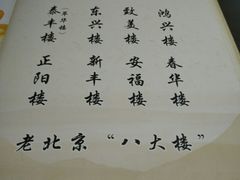 鸿兴楼 春华楼
致美楼 安福楼
东兴楼 新丰楼
(萃华楼)
泰丰楼 正阳楼
老北京“八大楼”